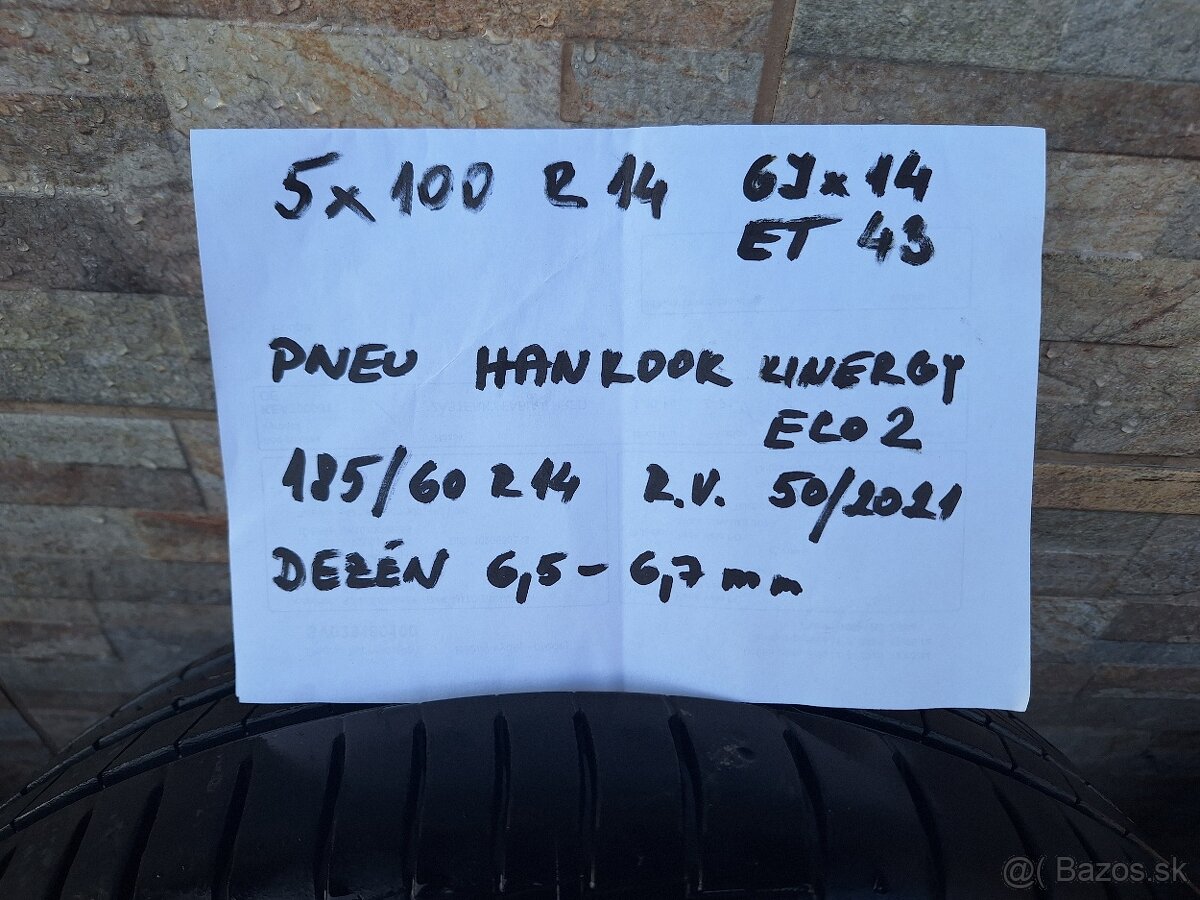 5x100 R14 6Jx14
ET 43
PNEU HANKOOK KINERGY
ECO 2
185/60 R14 R.V. 50/2021
DEZÉN 6,5 - 6,7 mm
@( Bazos.sk